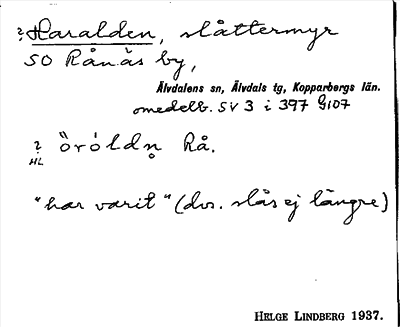 ? Haralden, slåttermyr
SO Rånäs by,
Älvdalens sn, Älvdals tg, Kopparbergs län.
omedelb. SV 3 i 397 G107
? öròldn̥ Rå.
HL
"har varit" (dvs. slås ej längre)
HELGE LINDBERG 1937.